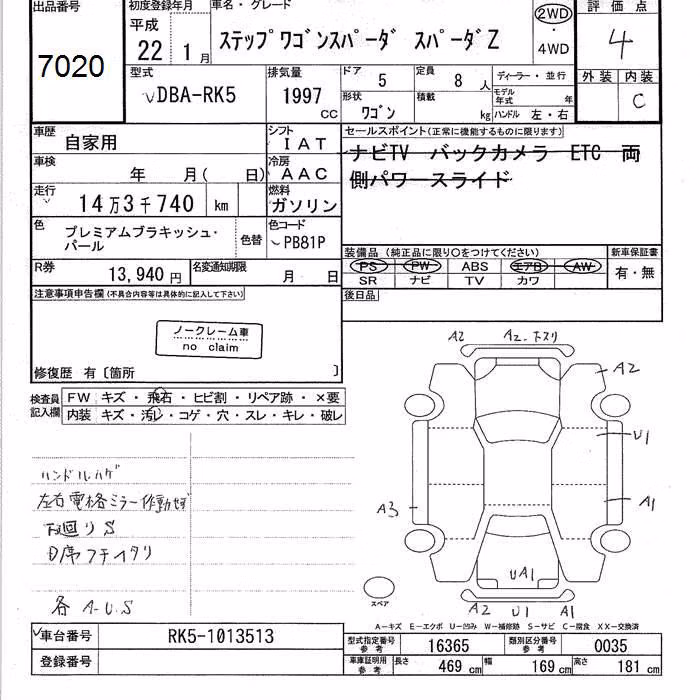 出品番号
7020
初度登録年月
平成
22年 1月
車名・グレード
ステップワゴンスパーダ スパーダZ
2WD
・
4WD
評価点
4
外装 内装
C
型式
DBA-RK5
排気量
1997 cc
ドア
5
定員
8人
形状
ワゴン
積載
kg
ディーラー・並行
モデル年式 年
ハンドル 左・右
車歴
自家用
シフト
IAT
車検
年 月( 日)
冷房
AAC
走行
14万3千740 km
燃料
ガソリン
色
プレミアムブラキッシュ・パール
色替
色コード
PB81P
R券
13,940円
名変通知期限
月 日
セールスポイント(正常に機能するものに限ります)
ナビTV バックカメラ ETC 両
側パワースライド
装備品 (純正品に限り○をつけてください)
PS PW ABS エアB AW
SR ナビ TV カワ
新車保証書
有・無
後日品
注意事項申告欄(不具合内容等は具体的に記入して下さい)
ノークレーム車
no claim
修復歴 有〔箇所 〕
検査員記入欄
FW キズ・飛石・ヒビ割・リペア跡・×要
内装 キズ・汚レ・コゲ・穴・スレ・キレ・破レ
ハンドルハゲ
左右電格ミラー作動せず
下廻りS
D席フチイタリ
各 A-U.S
A2 A2.トスリ
A2
U1
A3
A1
UA1
A2 U1 A1
スペア
A-キズ E-エクボ U-凹み W-補修跡 S-サビ C-腐食 XX-交換済
車台番号
RK5-1013513
登録番号
型式指定番号参考
16365
類別区分番号参考
0035
車庫証明用参考
長さ 469 cm 幅 169 cm 高さ 181 cm